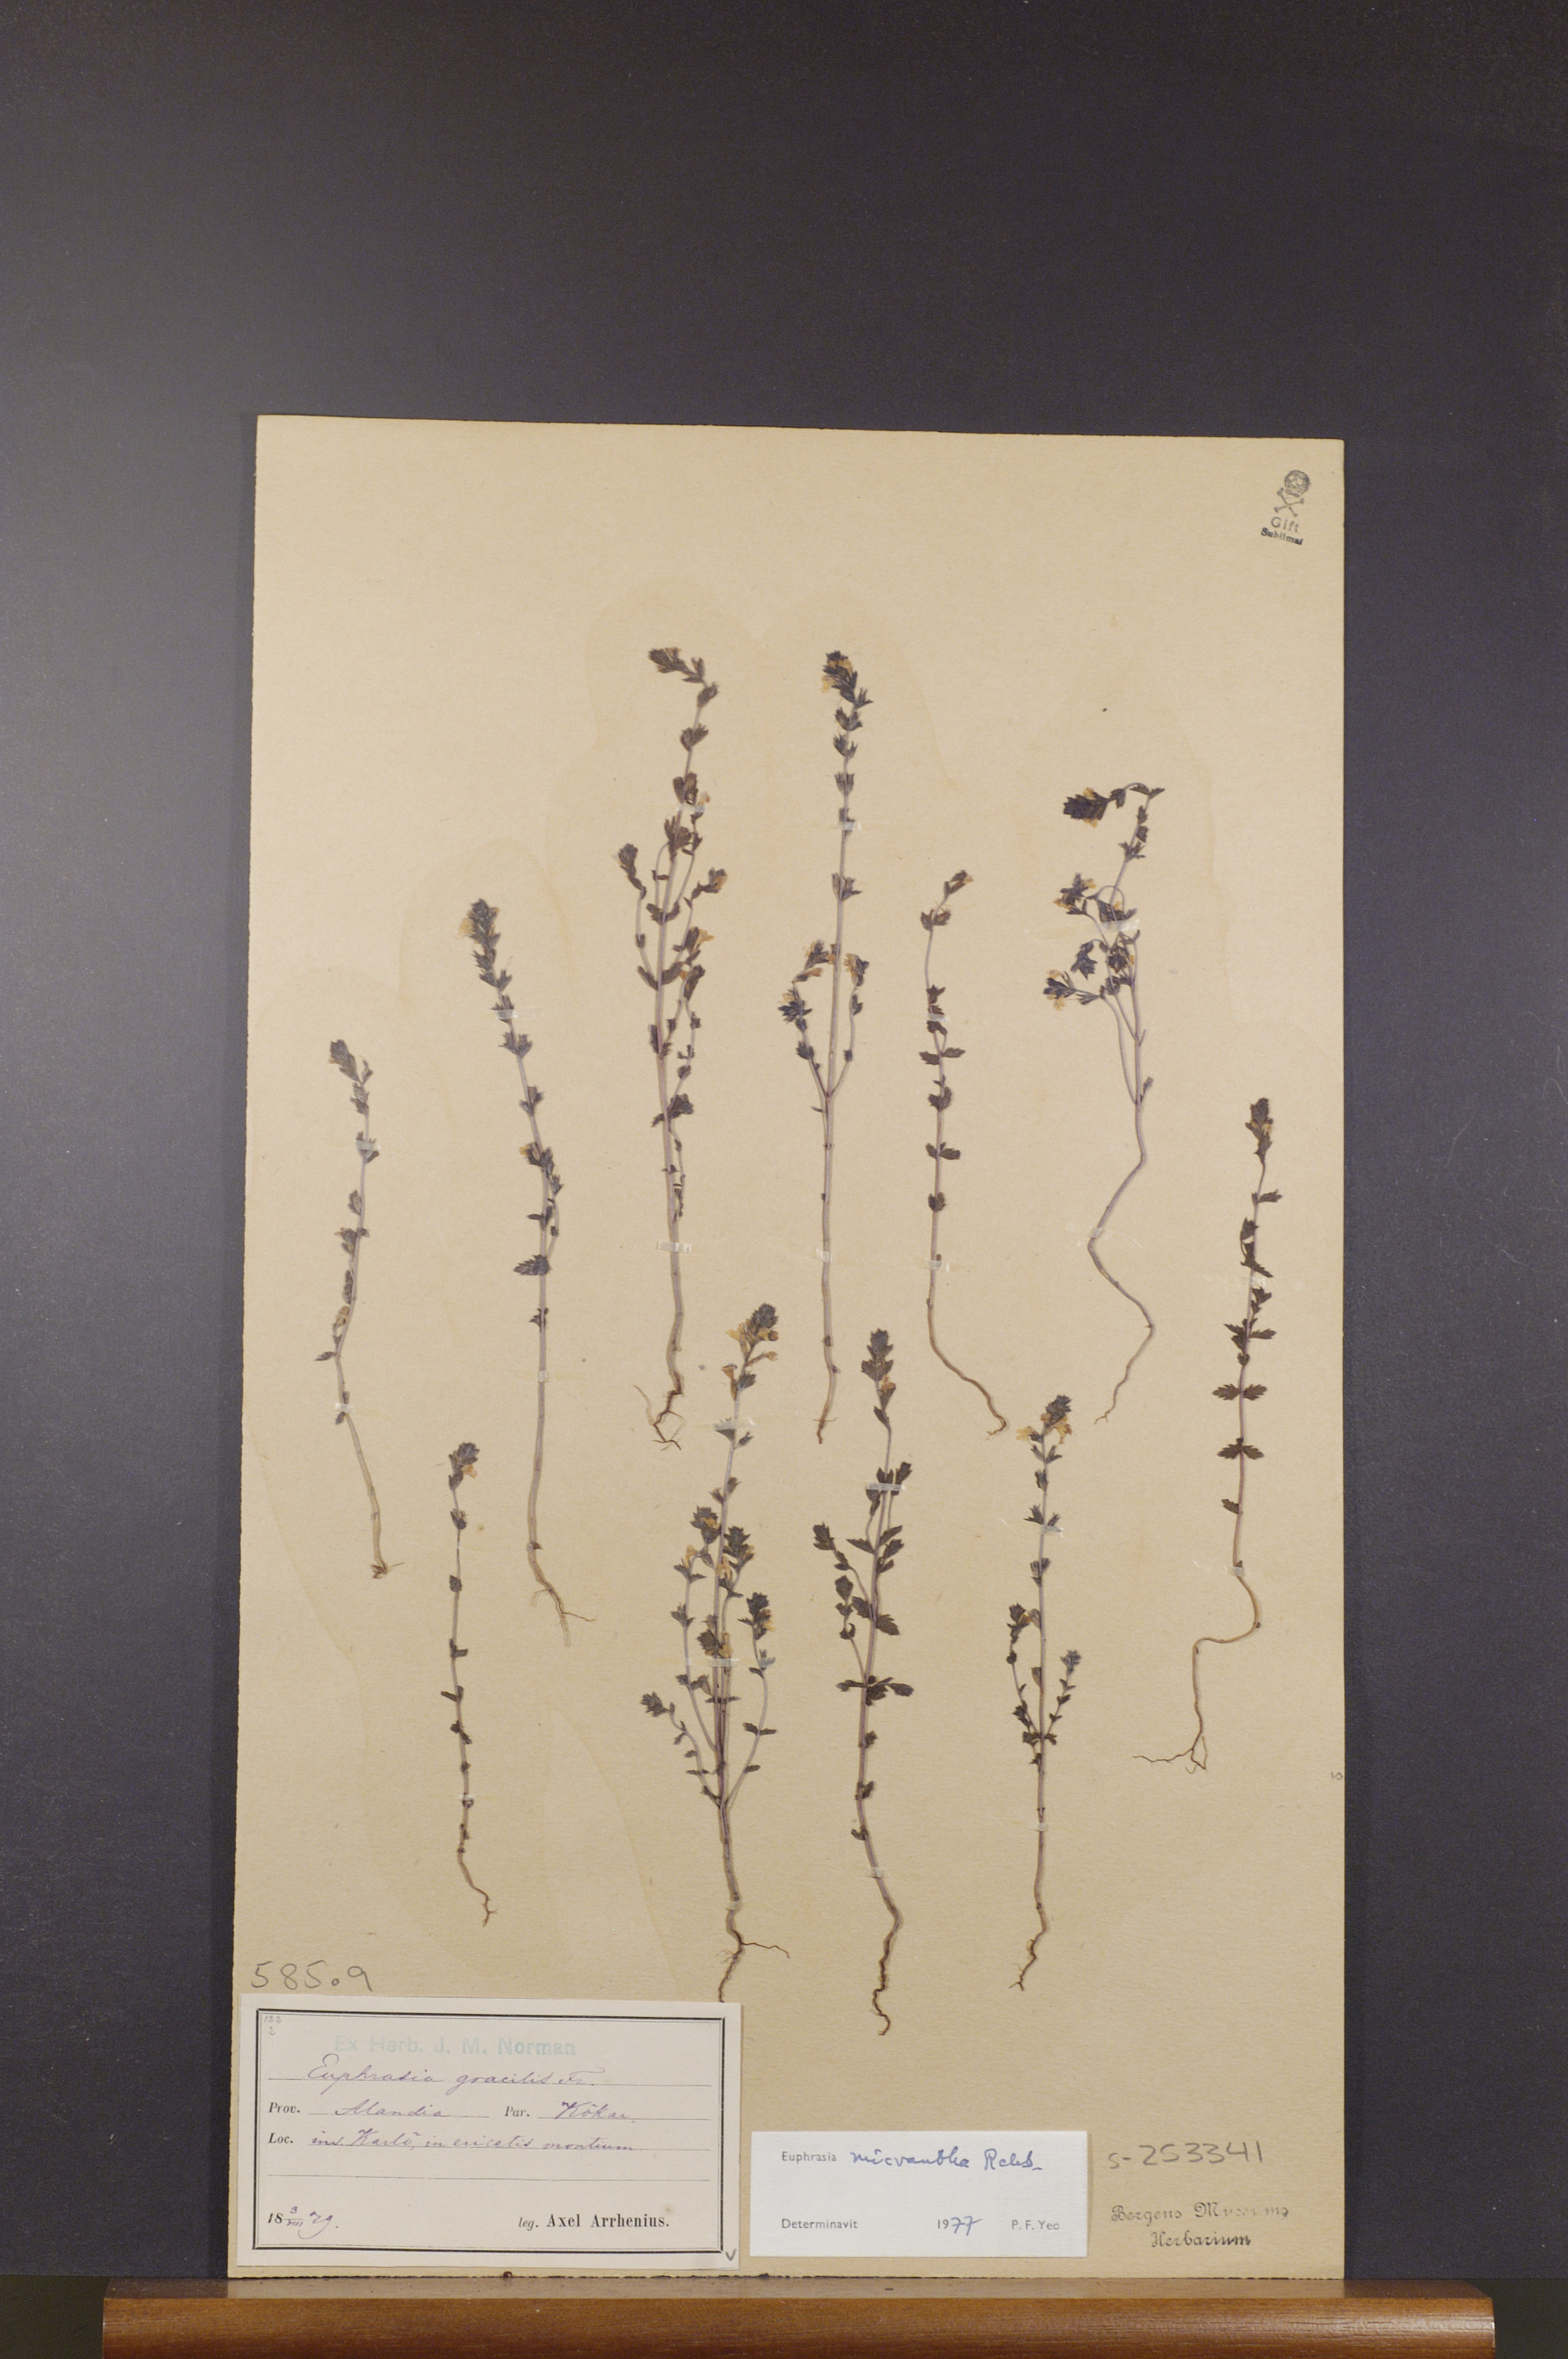 Gift
Sublimat
585.9
132
2
Ex Herb. J. M. Norman
Euphrasia gracilis Fr.
Prov. Alandia Par. Kökar.
Loc. ins. Karlö, in ericetis montium.
18 3/VIII 79. leg. Axel Arrhenius.
Euphrasia micrantha Rchb.
Determinavit 1977 P. F. Yeo
S-253341
Bergens Museums
Herbarium